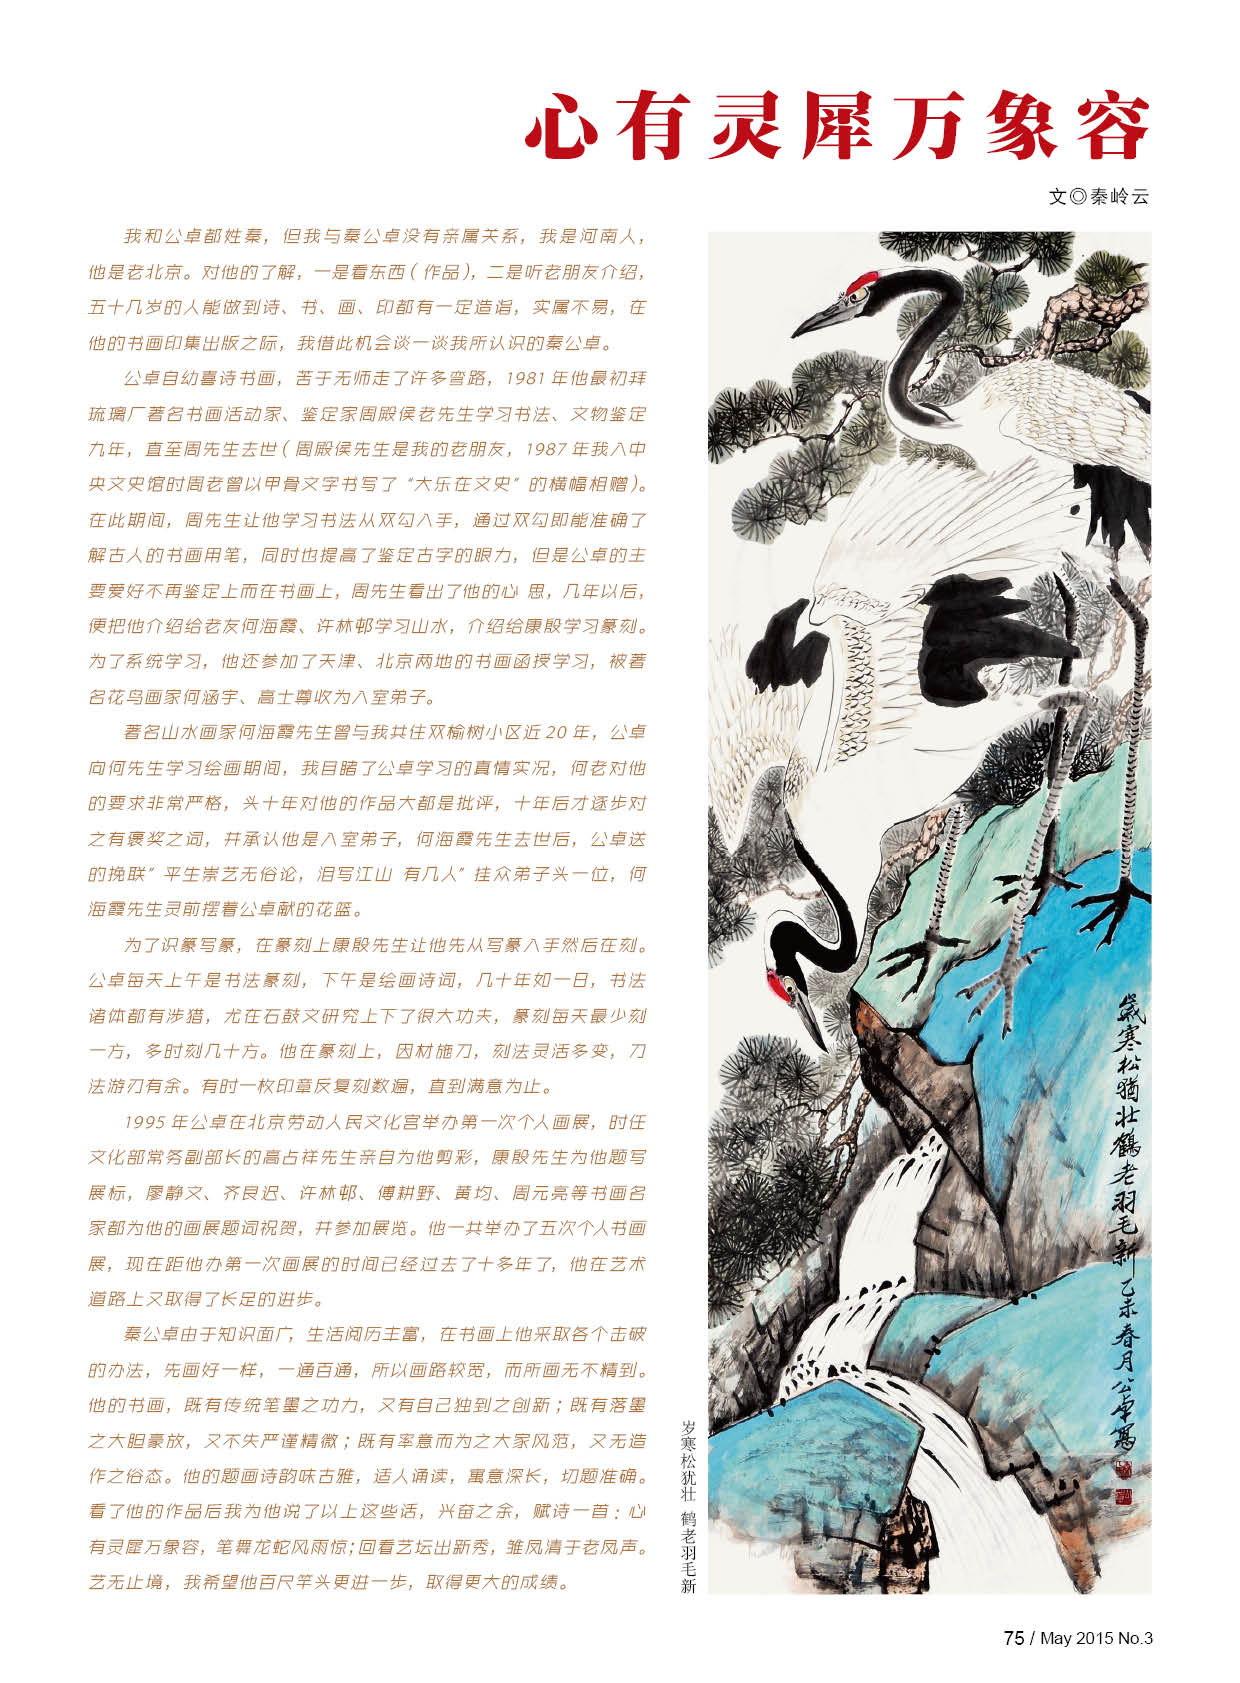 心有灵犀万象容
文◎秦岭云
我和公卓都姓秦，但我与秦公卓没有亲属关系，我是河南人，
他是老北京。对他的了解，一是看东西（作品），二是听老朋友介绍，
五十几岁的人能做到诗、书、画、印都有一定造诣，实属不易，在
他的书画印集出版之际，我借此机会谈一谈我所认识的秦公卓。
公卓自幼喜诗书画，苦于无师走了许多弯路，1981年他最初拜
琉璃厂著名书画活动家、鉴定家周殿侯老先生学习书法、文物鉴定
九年，直至周先生去世（周殿侯先生是我的老朋友，1987年我入中
央文史馆时周老曾以甲骨文字书写了“大乐在文史”的横幅相赠）。
在此期间，周先生让他学习书法从双勾入手，通过双勾即能准确了
解古人的书画用笔，同时也提高了鉴定古字的眼力，但是公卓的主
要爱好不再鉴定上而在书画上，周先生看出了他的心 思，几年以后，
便把他介绍给老友何海霞、许林邨学习山水，介绍给康殷学习篆刻。
为了系统学习，他还参加了天津、北京两地的书画函授学习，被著
名花鸟画家何涵宇、高士尊收为入室弟子。
著名山水画家何海霞先生曾与我共住双榆树小区近20年，公卓
向何先生学习绘画期间，我目睹了公卓学习的真情实况，何老对他
的要求非常严格，头十年对他的作品大都是批评，十年后才逐步对
之有褒奖之词，并承认他是入室弟子，何海霞先生去世后，公卓送
的挽联”平生崇艺无俗论，泪写江山 有几人”挂众弟子头一位，何
海霞先生灵前摆着公卓献的花篮。
为了识篆写篆，在篆刻上康殷先生让他先从写篆入手然后在刻。
公卓每天上午是书法篆刻，下午是绘画诗词，几十年如一日，书法
诸体都有涉猎，尤在石鼓文研究上下了很大功夫，篆刻每天最少刻
一方，多时刻几十方。他在篆刻上，因材施刀，刻法灵活多变，刀
法游刃有余。有时一枚印章反复刻数遍，直到满意为止。
1995年公卓在北京劳动人民文化宫举办第一次个人画展，时任
文化部常务副部长的高占祥先生亲自为他剪彩，康殷先生为他题写
展标，廖静文、齐良迟、许林邨、傅耕野、黄均、周元亮等书画名
家都为他的画展题词祝贺，并参加展览。他一共举办了五次个人书画
展，现在距他办第一次画展的时间已经过去了十多年了，他在艺术
道路上又取得了长足的进步。
秦公卓由于知识面广，生活阅历丰富，在书画上他采取各个击破
的办法，先画好一样，一通百通，所以画路较宽，而所画无不精到。
他的书画，既有传统笔墨之功力，又有自己独到之创新；既有落墨
之大胆豪放，又不失严谨精微；既有率意而为之大家风范，又无造
作之俗态。他的题画诗韵味古雅，适人诵读，寓意深长，切题准确。
看了他的作品后我为他说了以上这些话，兴奋之余，赋诗一首：心
有灵犀万象容，笔舞龙蛇风雨惊；回看艺坛出新秀，雏凤清于老凤声。
艺无止境，我希望他百尺竿头更进一步，取得更大的成绩。
歲寒松猶壮鶴老羽毛新 乙未春月公卓寫
岁寒松犹壮 鹤老羽毛新
75 / May 2015 No.3